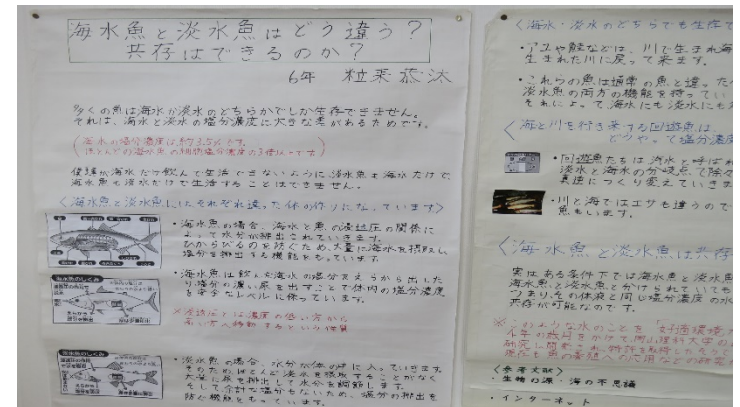 海水魚と淡水魚はどう違う?
共存はできるのか?
6年
多くの魚は海水か淡水のどちらかでしか生存できません。
それは、海水と淡水の塩分濃度に大きな差があるためです。
海水の塩分濃度は約3.5%です。
僕達が海水だけ飲んで生活できないように淡水魚も海水だけで、
海水魚も淡水だけで生活することはできません。
〈海水魚と淡水魚にはそれぞれ違った体の作りになっています〉
・海水魚の場合、海水と魚の浸透圧の関係に
よって水分が排出されていきます。
ひからびるのを防ぐため大量に海水を摂取し
塩分を排出する機能をもっています。
・海水魚は飲んだ海水の塩分をえらから出した
り塩分の濃い尿を出すことで体内の塩分濃度
を安全なレベルに保っています。
※浸透圧とは濃度の低い方から
高い方へ移動するという性質
・淡水魚の場合、水分が体の中に入っていきます。
そのためほとんど淡水を摂取することがなく
大量に尿を排出して水分を調節します。
そして余計な塩分もないため、塩分の排出を
防ぐ機能をもっています。
〈海水・淡水のどちらでも生存で
・アユや鮭などは、川で生まれ海
生まれた川に戻って来ます。
・これらの魚は通常の魚と違った
淡水魚の両方の機能を持ってい
それによって、海水にも淡水にも
〈海と川を行き来する回遊魚は、
どうやって塩分濃度
・回遊魚たちは汽水と呼ばれ
淡水と海水の分岐点で徐々
真逆につくり変えていきま
・川と海ではエサも違うので
魚もいます。
〈海水魚と淡水魚は共存
実はある条件下では海水魚と淡水魚
海水魚と淡水魚とか分けられていても
つまり、その体液と同じ塩分濃度の水
共存が可能なのです。
※このような水のことを「好適環境
の歳月をかけて、岡山理科大学の
研究し開発され、特許を取得したそう
現在も魚の養殖への応用などの研究
〈参考文献〉
・生物の源・海の不思議
・インターネット